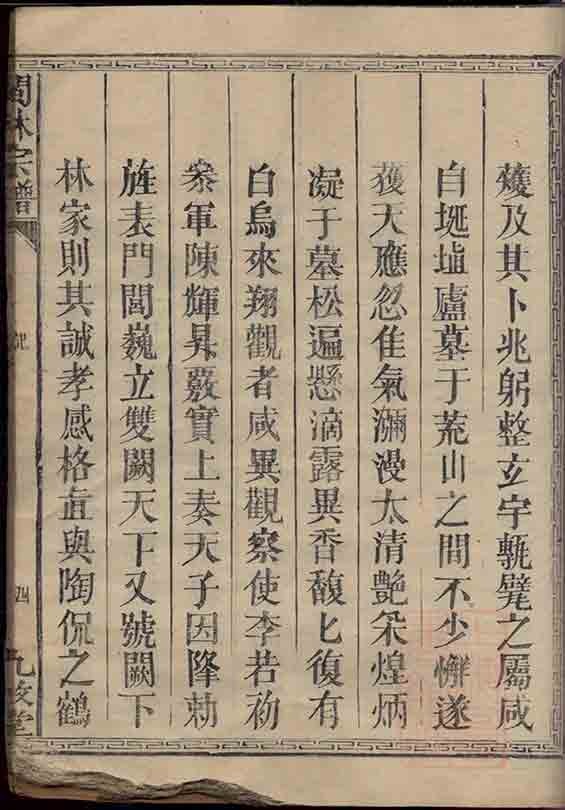 穫及其卜兆躬整玄宇甎甓之屬咸
自埏埴廬墓于荒山之間不少懈遂
蒦天應忽佳氣瀰漫太清艷朶煌炳
凝于墓松遍懸滴露異香馥匕復有
白烏來翔觀者咸異觀察使李若初
叅軍陳輝昇覈實上奏天子因降勅
旌表門閭巍立雙闕天下又號闕下
林家則其誠孝感格直與陶侃之鶴
林宗譜
四
九牧堂